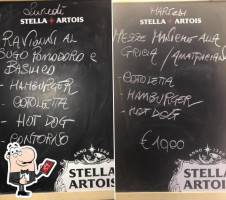 Lunedì
STELLA ARTOIS
RAVIOLINI AL
SUGO POMODORO E
BASILICO
- HAMBURGER
- COTOLETA
- HOT DOG
- CONTORNO
ANNO 1366
STELLA
ARTOIS
MARTEDì
STELLA ARTOIS
MEZZE MANICHE ALLA
GRICIA / AMATRICIANA
- COTOLETA
- HAMBURGER
- HOT DOG
€ 10,00
STELLA
ARTOIS